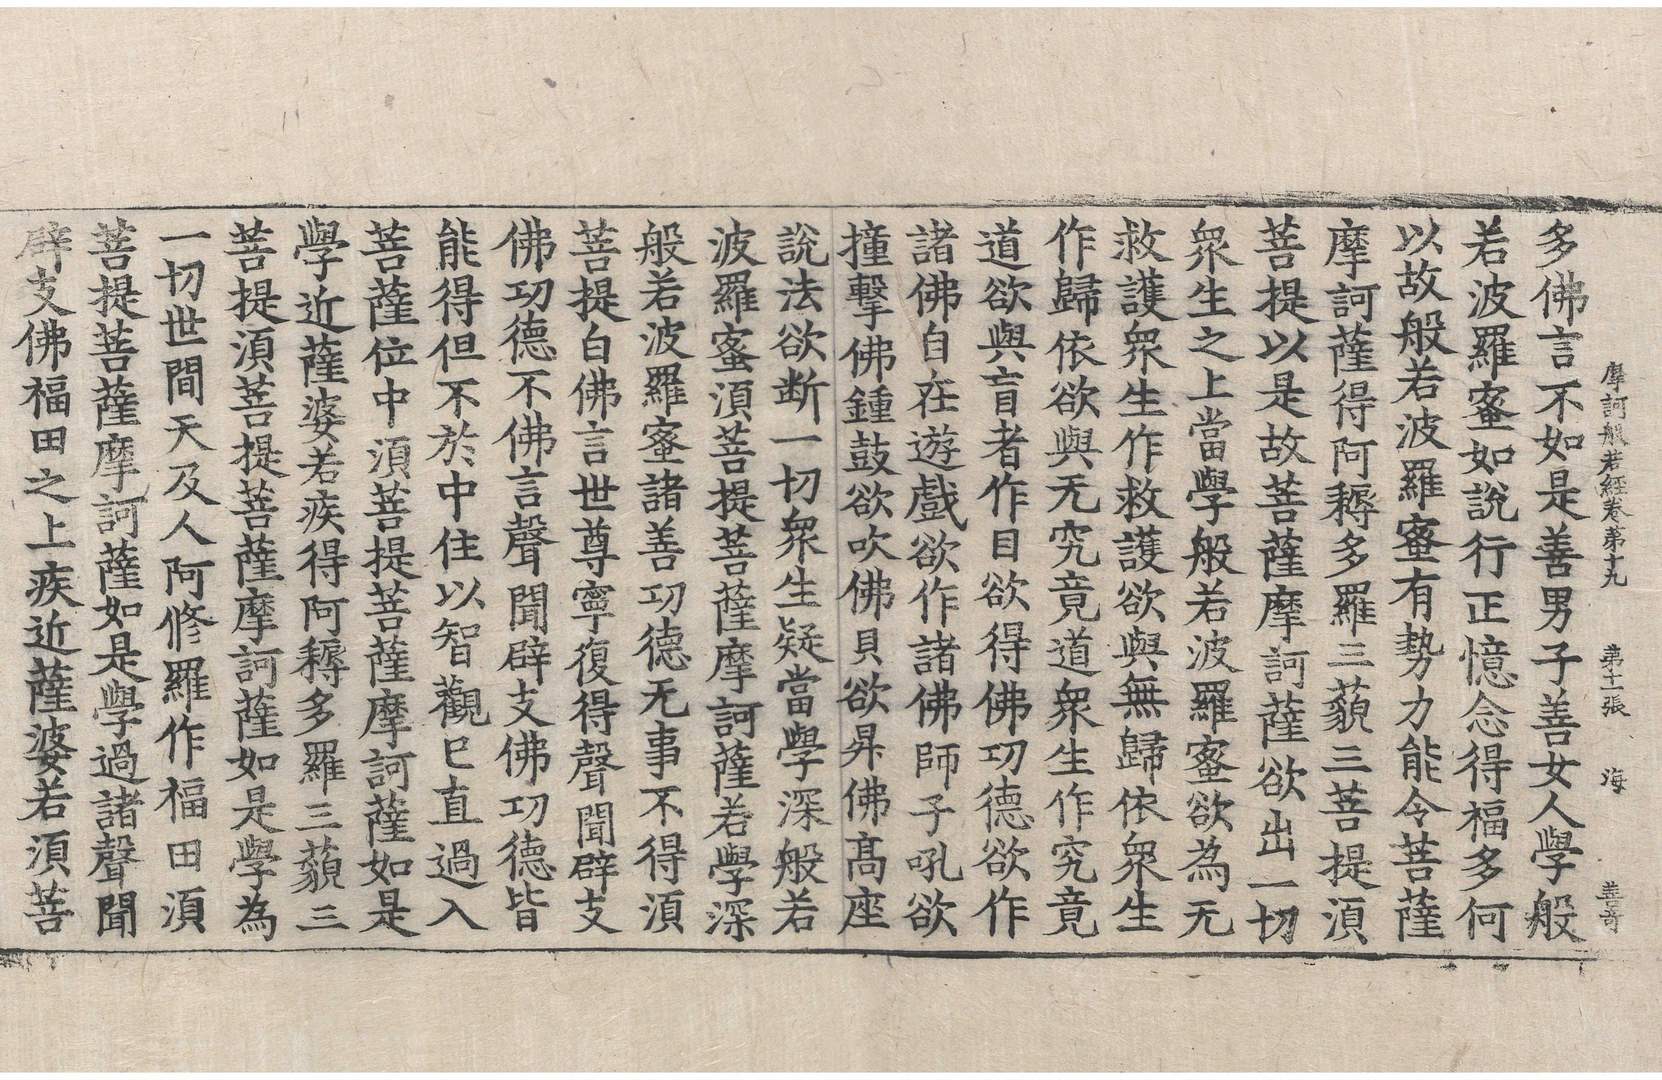 摩訶般若經卷第十九　第十一張　海　善奇
多佛言不如是善男子善女人學般
若波羅蜜如說行正憶念得福多何
以故般若波羅蜜有勢力能令菩薩
摩訶薩得阿耨多羅三藐三菩提須
菩提以是故菩薩摩訶薩欲出一切
衆生之上當學般若波羅蜜欲為无
救護衆生作救護欲與無歸依衆生
作歸依欲與无究竟道衆生作究竟
道欲與盲者作目欲得佛功德欲作
諸佛自在遊戲欲作諸佛師子吼欲
撞擊佛鍾鼓欲吹佛貝欲昇佛髙座
說法欲断一切衆生疑當學深般若
波羅蜜須菩提菩薩摩訶薩若學深
般若波羅蜜諸善功德无事不得須
菩提白佛言世尊寧復得聲聞辟支
佛功德不佛言聲聞辟支佛功德皆
能得但不於中住以智觀已直過入
菩薩位中須菩提菩薩摩訶薩如是
學近薩婆若疾得阿耨多羅三藐三
菩提須菩提菩薩摩訶薩如是學為
一切世間天及人阿修羅作福田須
菩提菩薩摩訶薩如是學過諸聲聞
辟支佛福田之上疾近薩婆若須菩